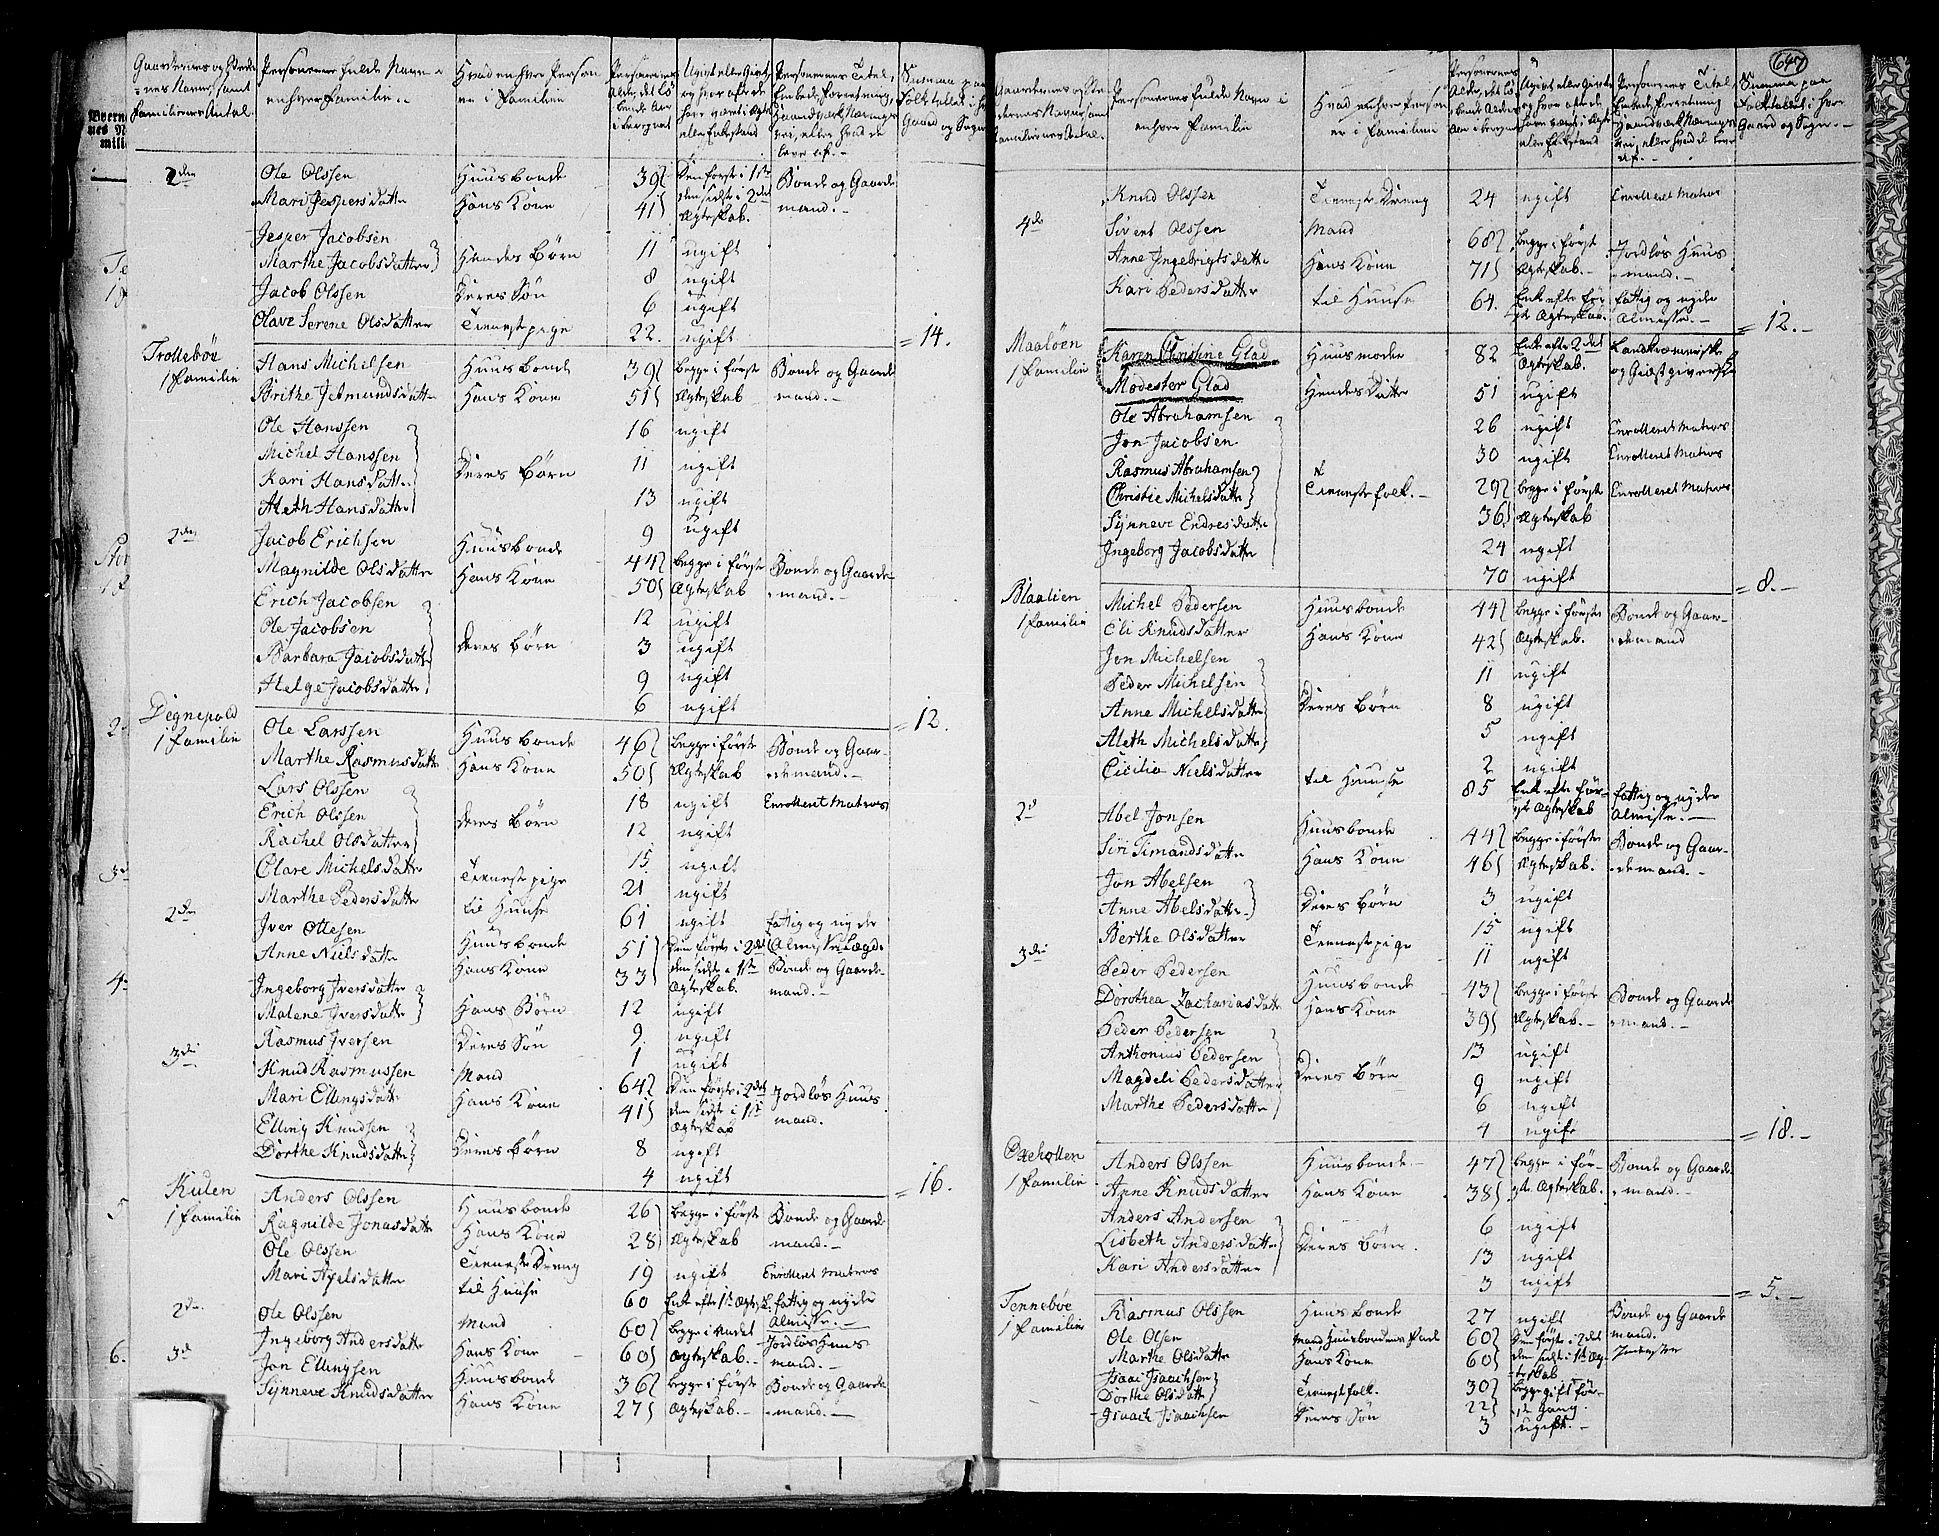 647
Gaardernes og Stedernes Navne, samt Familiernes Antal. | Personernes fulde Navne i enhver familie. | Hvad enhver Person er i familien | Personernes Alder, det løbende Aar iberegnet | Ugivt eller Givt, og hvor ofte de have været i Ægteskab eller Enkestand | Personernes Titel, Embede, forretning, Haandværk, Nærings vei, eller hvad de leve af. | Summa paa folketallet i hver Gaard og Sogn
2den | Ole Olssen | Huusbonde | 39 | Den første i 1ste | Bonde og Gaard
Mari Jespersdatter | Hans Kone | 41 | den sidste i 2det Ægteskab. | mand.
Jesper Jacobsen | Hendes Børn | 11 | ugift
Marthe Jacobsdatter | 8 | ugift
Jacob Olssen | Deres Søn | 6 | ugift
Olave Serene Olsdatter | Tienestpige | 22. | ugift | = 14.
Trollebøe
1 familie | Hans Michelsen | Huusbonde | 39 | begge i første | Bonde og Gaard
Brithe Jetmundsdatter | Hans Kone | 51 | Ægteskab | mand.
Ole Hanssen | 16 | ugift
Michel Hanssen | Deres Børn | 11 | ugift
Kari Hansdatter | 13 | ugift
Aleth Hansdatter | 9 | ugift
2den | Jacob Erichsen | Huusbonde | 44 | begge i første | Bonde og Gaarde
Magnilde Olsdatter | Hans Kone | 50 | Ægteskab | mand.
Erich Jacobsen | 12 | ugift
Ole Jacobsen | Deres Børn | 3 | ugift
Barbara Jacobsdatter | 9 | ugift
Helge Jacobsdatter | 6 | ugift | = 12.
Degnepold
1 familie | Ole Larssen | Huusbonde | 46 | begge i første | Bonde og Gaar-
Marthe Rasmusdatter | Hans Kone | 50 | Ægteskab | demand.
Lars Olssen | 18 | ugift | Enrolleret Matros
Erich Olssen | Deres Børn | 12 | ugift
Rachel Olsdatter | 15 | ugift
Clare Michelsdatter | Tienestpige | 21 | ugift
Marthe Pedersdatter | til Huuse | 61 | ugift | fattig og nyder
2den | Iver Ottesen | Huusbonde | 51 | Den første i 2det | Almisse i Lægd.
Anne Nielsdatter | Hans Kone | 33 | den sidste i 1ste Ægteskab. | Bonde og Gaarde mand.
Ingeborg Iversdatter | Hans Børn | 12 | ugift
Malene Iversdatter | 9 | ugift
Rasmus Iversen | Deres Søn | 1 | ugift
3die | Knud Rasmussen | Mand | 64 | Den første i 2det | Jordløs Huus
Mari Ellingsdatter | Hans Kone | 41 | den sidste i 1ste Ægteskab | mand.
Elling Knudsen | Deres Børn | 8 | ugift
Dorthe Knudsdatter | 4 | ugift | = 16.
Kulen
1 familie | Anders Olssen | Huusbonde | 26 | begge i første | Bonde og Gaarde
Ragnilde Jonasdatter | Hans Kone | 28 | Ægteskab | mand.
Ole Olssen | Tieneste Dreng | 19 | ugift | Enrolleret Matros
Mari Axelsdatter | til Huuse | 60 | Enke efter 1ste Ægtesk. | fattig og nyder Almisse.
2den | Ole Olssen | Mand | 60 | begge i Andet | Jordløs Huus
Ingeborg Andersdatter | Hans Kone | 60 | Ægteskab. | mand.
3d | Jon Ellingsen | Huusbonde | 36 | begge i første | Bonde og Gaarde
Synneve Knudsdatter | Hans Kone | 27 | Ægteskab. | mand.
Gaardernes og Stedernes Navne, samt Familiernes Antal. | Personernes fulde Navne i enhver familie | Hvad enhver Person er i familien | Personernes Alder, det løbende Alders Aar iberegnet | Ugivt eller Givt, og hvor ofte de have været i Ægteskab eller Enkestand | Personernes Titel, Embede, forretning, Haandværk, Nærings vei, eller hvad de leve af. | Summa paa folketallet i hver Gaard og Sogn.
Knud Olssen | Tieneste Dreng | 24 | ugift | Enrolleret Matros
4de | Sivert Olssen | Mand | 68 | begge i først | Jordløs Huus
Anne Ingebrigtsdatter | Hans Kone | 71 | Ægteskab. | mand.
Kari Pedersdatter | til Huuse | 64. | Enke efter første Ægteskab. | fattig og nyder Almisse. | = 12.
Maaløen
1 familie | Karen Christine Glad | Huusmoder | 82 | Enke efter 2det Ægteskab. | Landkræmerske og Giæstgiverske
Modester Glad | Hendes Datter | 51 | ugift
Ole Abrahamsen | 26 | ugift | Enrolleret Matros
Jon Jacobsen | 30 | ugift | Enrolleret Matros
Rasmus Abrahamsen | Tienestefolk. | 29 | begge i første | Enrolleret Matros
Christie Michelsdatter | 36 | Ægteskab
Synneve Endresdatter | 24 | ugift
Ingeborg Jacobsdatter | 70 | ugift | = 8.
Blaalien
1 familie | Michel Pedersen | Huusbonde | 44 | begge i første | Bonde og Gaar-
Eli Knudsdatter | Hans Kone | 42 | Ægteskab. | demand
Jon Michelsen | 11 | ugift
Peder Michelsen | Deres Børn | 8 | ugift
Anne Michelsdatter | 5 | ugift
Aleth Michelsdatter | 2 | ugift
Cicilia Nielsdatter | til Huuse | 85 | Enke efter første Ægteskab | fattig og nyder Almisse.
2d | Abel Jonsen | Huusbonde | 44 | begge i første | Bonde og Gaar-
Siri Timandsdatter | Hans Kone | 46 | Ægteskab. | demand.
Jon Abelsen | Deres Børn | 3 | ugift
Anne Abelsdatter | 15 | ugift
Berthe Olsdatter | Tienestpige | 11 | ugift
3die | Peder Pedersen | Huusbonde | 43 | begge i første | Bonde og Gaarde
Dorothea Zachariasdatter | Hans Kone | 39 | Ægteskab. | mand.
Peder Pedersen | 13 | ugift
Anthonius Pedersen | Deres Børn | 9 | ugift
Magdeli Pedersdatter | 6 | ugift
Marthe Pedersdatter | 4 | ugift | = 18.
Oxeholten
1 familie | Anders Olssen | Huusbonde | 47 | begge i før- | Bonde og Gaarde
Anne Knudsdatter | Hans Kone | 38 | ste Ægteskab. | mand.
Anders Andersen | 6 | ugift
Lisbeth Andersdatter | Deres Børn. | 13 | ugift
Kari Andersdatter | 3 | ugift | = 5.
Tennebøe
1 familie | Rasmus Olssen | Huusbonde | 27 | ugift | Bonde og Gaarde mand.
Ole Olsen | Mand Huusbondens Fader | 60 | Den første i 2det | Inderster
Marthe Olsdatter | Hans Kone | 60 | den sidst i 1ste Ægteskab
Isaac Isaachsen | Tienestfolk. | 30 | begge gift før-
Dorthe Olsdatter | 22 | ste Gang.
Isaach Isaachsen | Deres Søn | 3 | ugift.